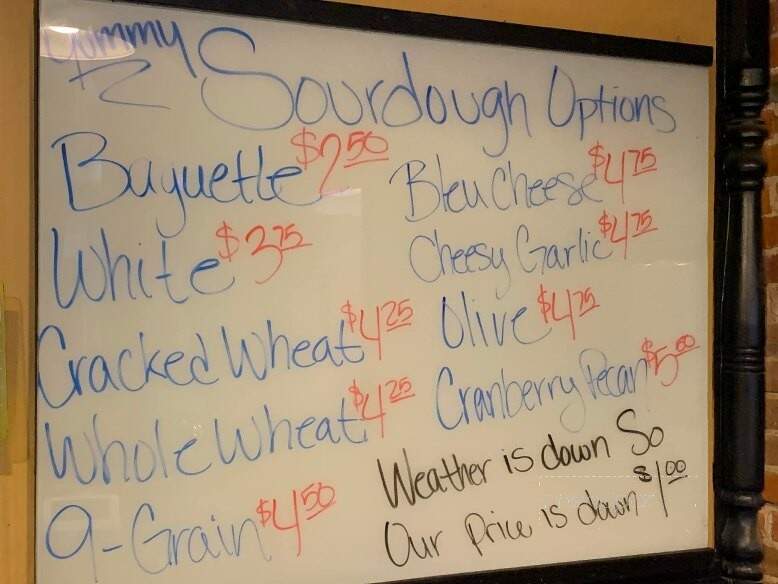 Yummy
Sourdough Options
Baguette $2.50
White $3.75
Cracked Wheat $4.25
Whole Wheat $4.25
9-Grain $4.50
Bleu Cheese $4.75
Cheesy Garlic $4.75
Olive $4.75
Cranberry Pecan $5.00
Weather is down So
Our Price is down $1.00